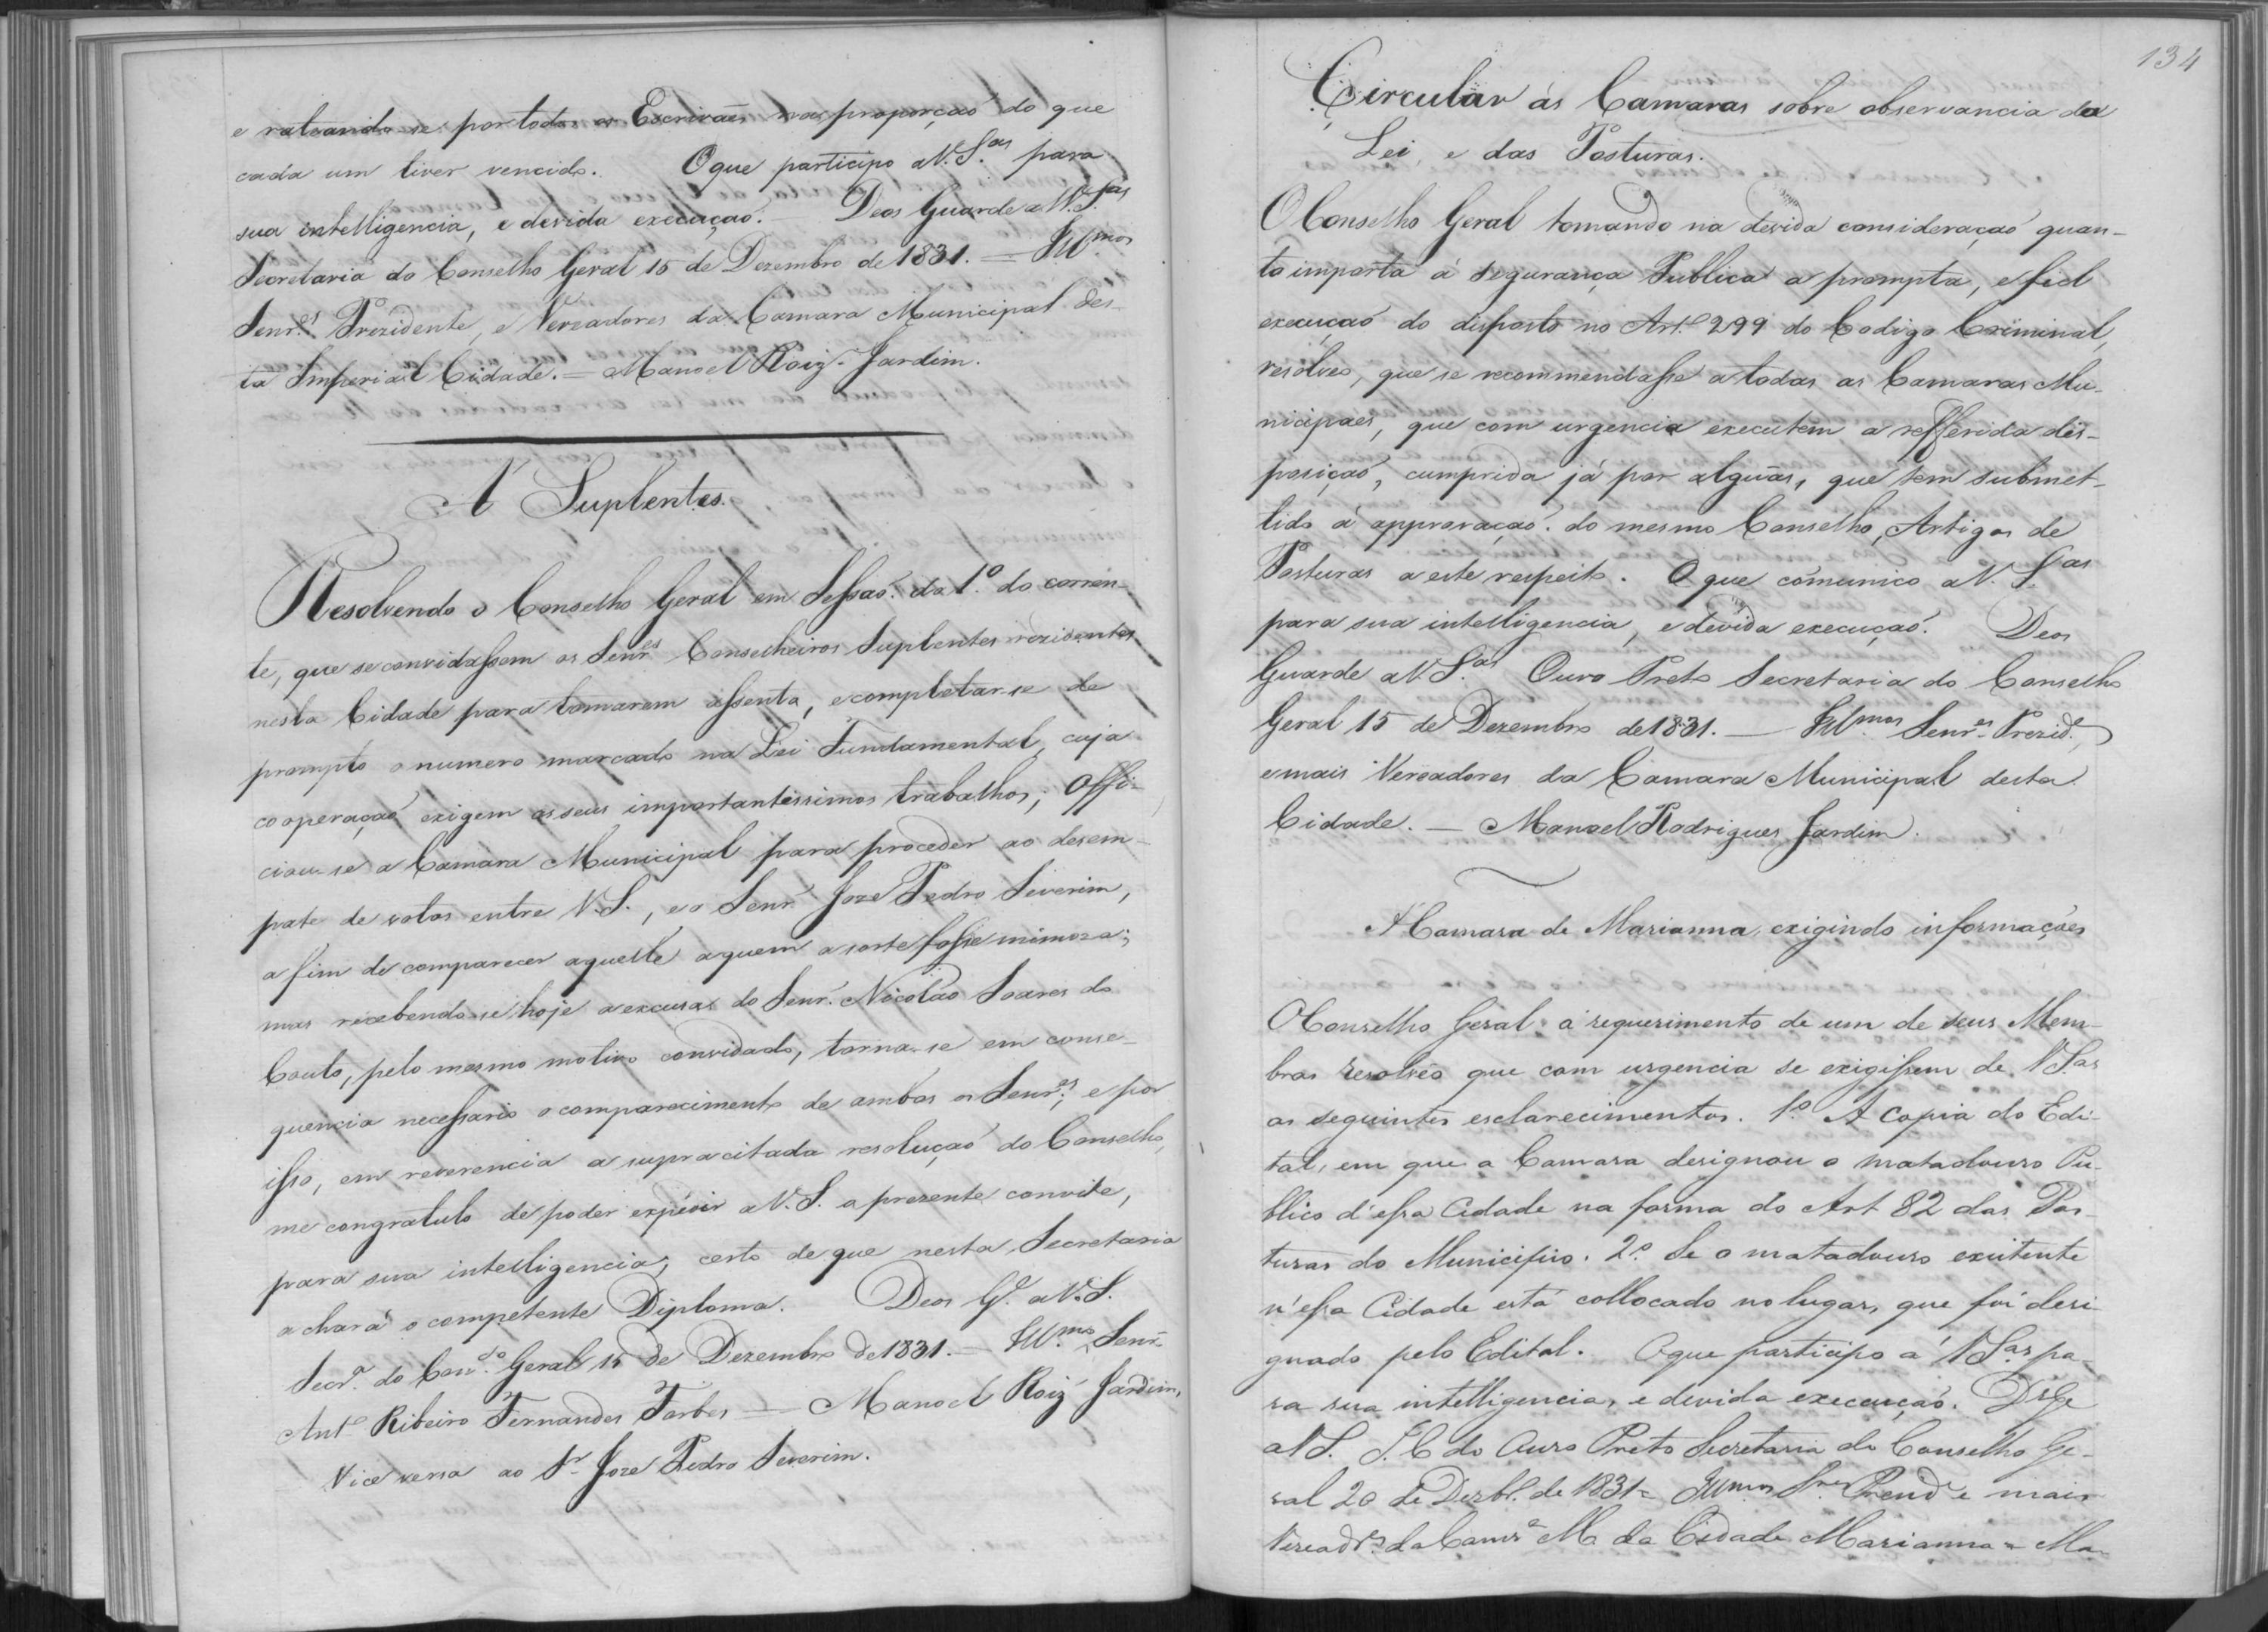 e rateando-se por todos os Escrivães na proporçaõ do que
cada um tiver vencido. O que participo a V. S.as para
sua intelligencia, e devida execuçaõ. — Deos Guarde a V. S.as
Secretaria do Conselho Geral 15 de Dezembro de 1831. — Ill.mos
Senr.es Prezidente, e Vereadores da Camara Municipal des-
ta Imperial Cidade. — Manoel Roiz. Jardim.
A' Suplentes.
Resolvendo o Conselho Geral em Sessaõ do 1.º do corren-
te, que se convidassem os Senr.es Conselheiros Suplentes rezidentes
nesta Cidade para tomarem assento, e completar-se de
prompto o numero marcado na Lei Fundamental, cuja
cooperaçaõ exigem os seus importantissimos trabalhos; Offi-
ciou-se a Camara Municipal para proceder ao desem-
pate de votos entre V. S., e o Senr. Joze Pedro Severim,
a fim de comparecer aquelle aquem a sorte fosse mimoza;
mas recebendo-se hoje a excusa do Senr. Nicoláo Soares do
Couto, pelo mesmo motivo convidado, torna-se em conse-
quencia necessario o comparecimento de ambos os Senr.es; e por
isso, em reverencia a supracitada resoluçaõ do Conselho,
me congratulo de poder expedir a V. S. o prezente convite,
para sua intelligencia; certo de que nesta Secretaria
achará o competente Diploma. Deos G.e a V. S.
Secr.a do Con.º Geral 15 de Dezembro de 1831. — Ill.mo Senr.
Ant.º Ribeiro Fernandes Forbes — Manoel Roiz Jardim,
Vice versa ao Sr. Joze Pedro Severim.
134
Circular ás Camaras sobre observancia da
Lei, e das Posturas.
O Conselho Geral tomando na devida consideraçaõ quan-
to importa á segurança Publica a prompta, e fiel
execuçaõ do disposto no Art.º 299 do Codigo Criminal,
resolveo, que se recommendasse a todas as Camaras Mu-
nicipaes, que com urgencia executem a refferida dis-
posiçaõ, cumprida já por alguãs, que tem submet-
tido á approvaçaõ do mesmo Conselho, Artigos de
Posturas a este respeito. O que comunico a V. S.as
para sua intelligencia, e devida execuçaõ. Deos
Guarde a V. S.as Ouro Preto Secretaria do Conselho
Geral 15 de Dezembro de 1831. — Ill.mos Senr.es Prezid.e,
e mais Vereadores da Camara Municipal desta
Cidade. — Manoel Rodrigues Jardim.
A' Camara de Marianna, exigindo informações
O Conselho Geral á requerimento de um de seus Mem-
bros resolveo que com urgencia se exigissem de V Sas
os seguintes esclarecimentos. 1.º A Copia do Edi-
tal, em que a Camara designou o matadouro Pu-
blico d'essa Cidade na forma do Art 82 das Pos-
turas do Municipio. 2.º Se o matadouro existente
n'essa Cidade está collocado no lugar, que foi desi-
gnado pelo Edital. O que participo á V S.as pa-
ra sua intelligencia, e devida execuçaõ. Ds Ge
a V S. I. C do Ouro Preto Secretaria do Conselho Ge-
ral 20 de Dezbr.º de 1831 = Illmos Snres Prezid.e e mais
Veread.res da Camr.a M. da Cidade Marianna = Ma-